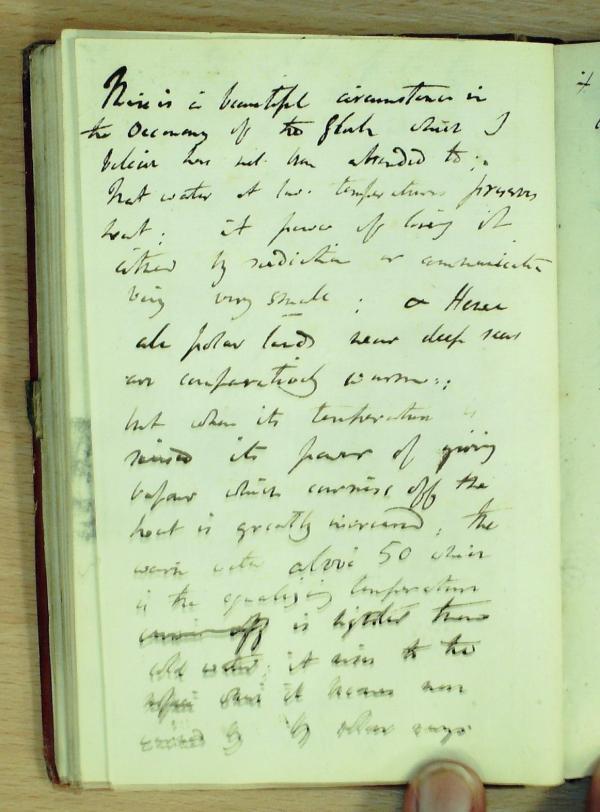 There is a beautiful circumstance in
the Oeconomy of the Globe which I
believe has not been attended to;
that water at low temperatures preserves
heat; its power of losing it
either by radiation or communication
being very small; Hence
all polar lands near deep seas
are comparatively warm:;
but when its temperature is
raised its power of giving
vapour which carries off the
heat is greatly increased; the
warm water above 50 which
is the equalizing temperature
carries off is lighter than
cold water; it rises to the
surface where it becomes more
by by solar rays